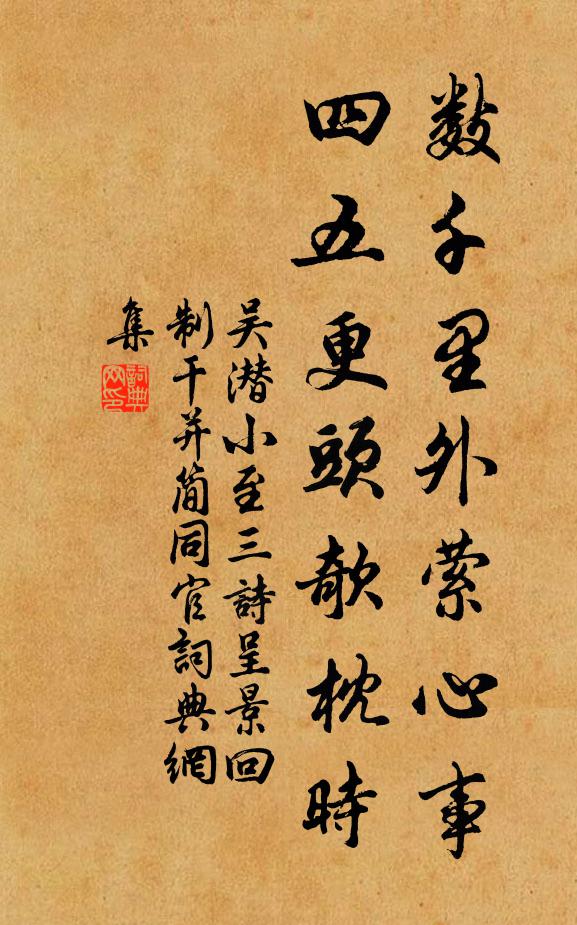 数千里外萦心事
四五更頭欹枕時
吴潜小至三詩呈景回
制干并简同官詞典網
集
詞典網印